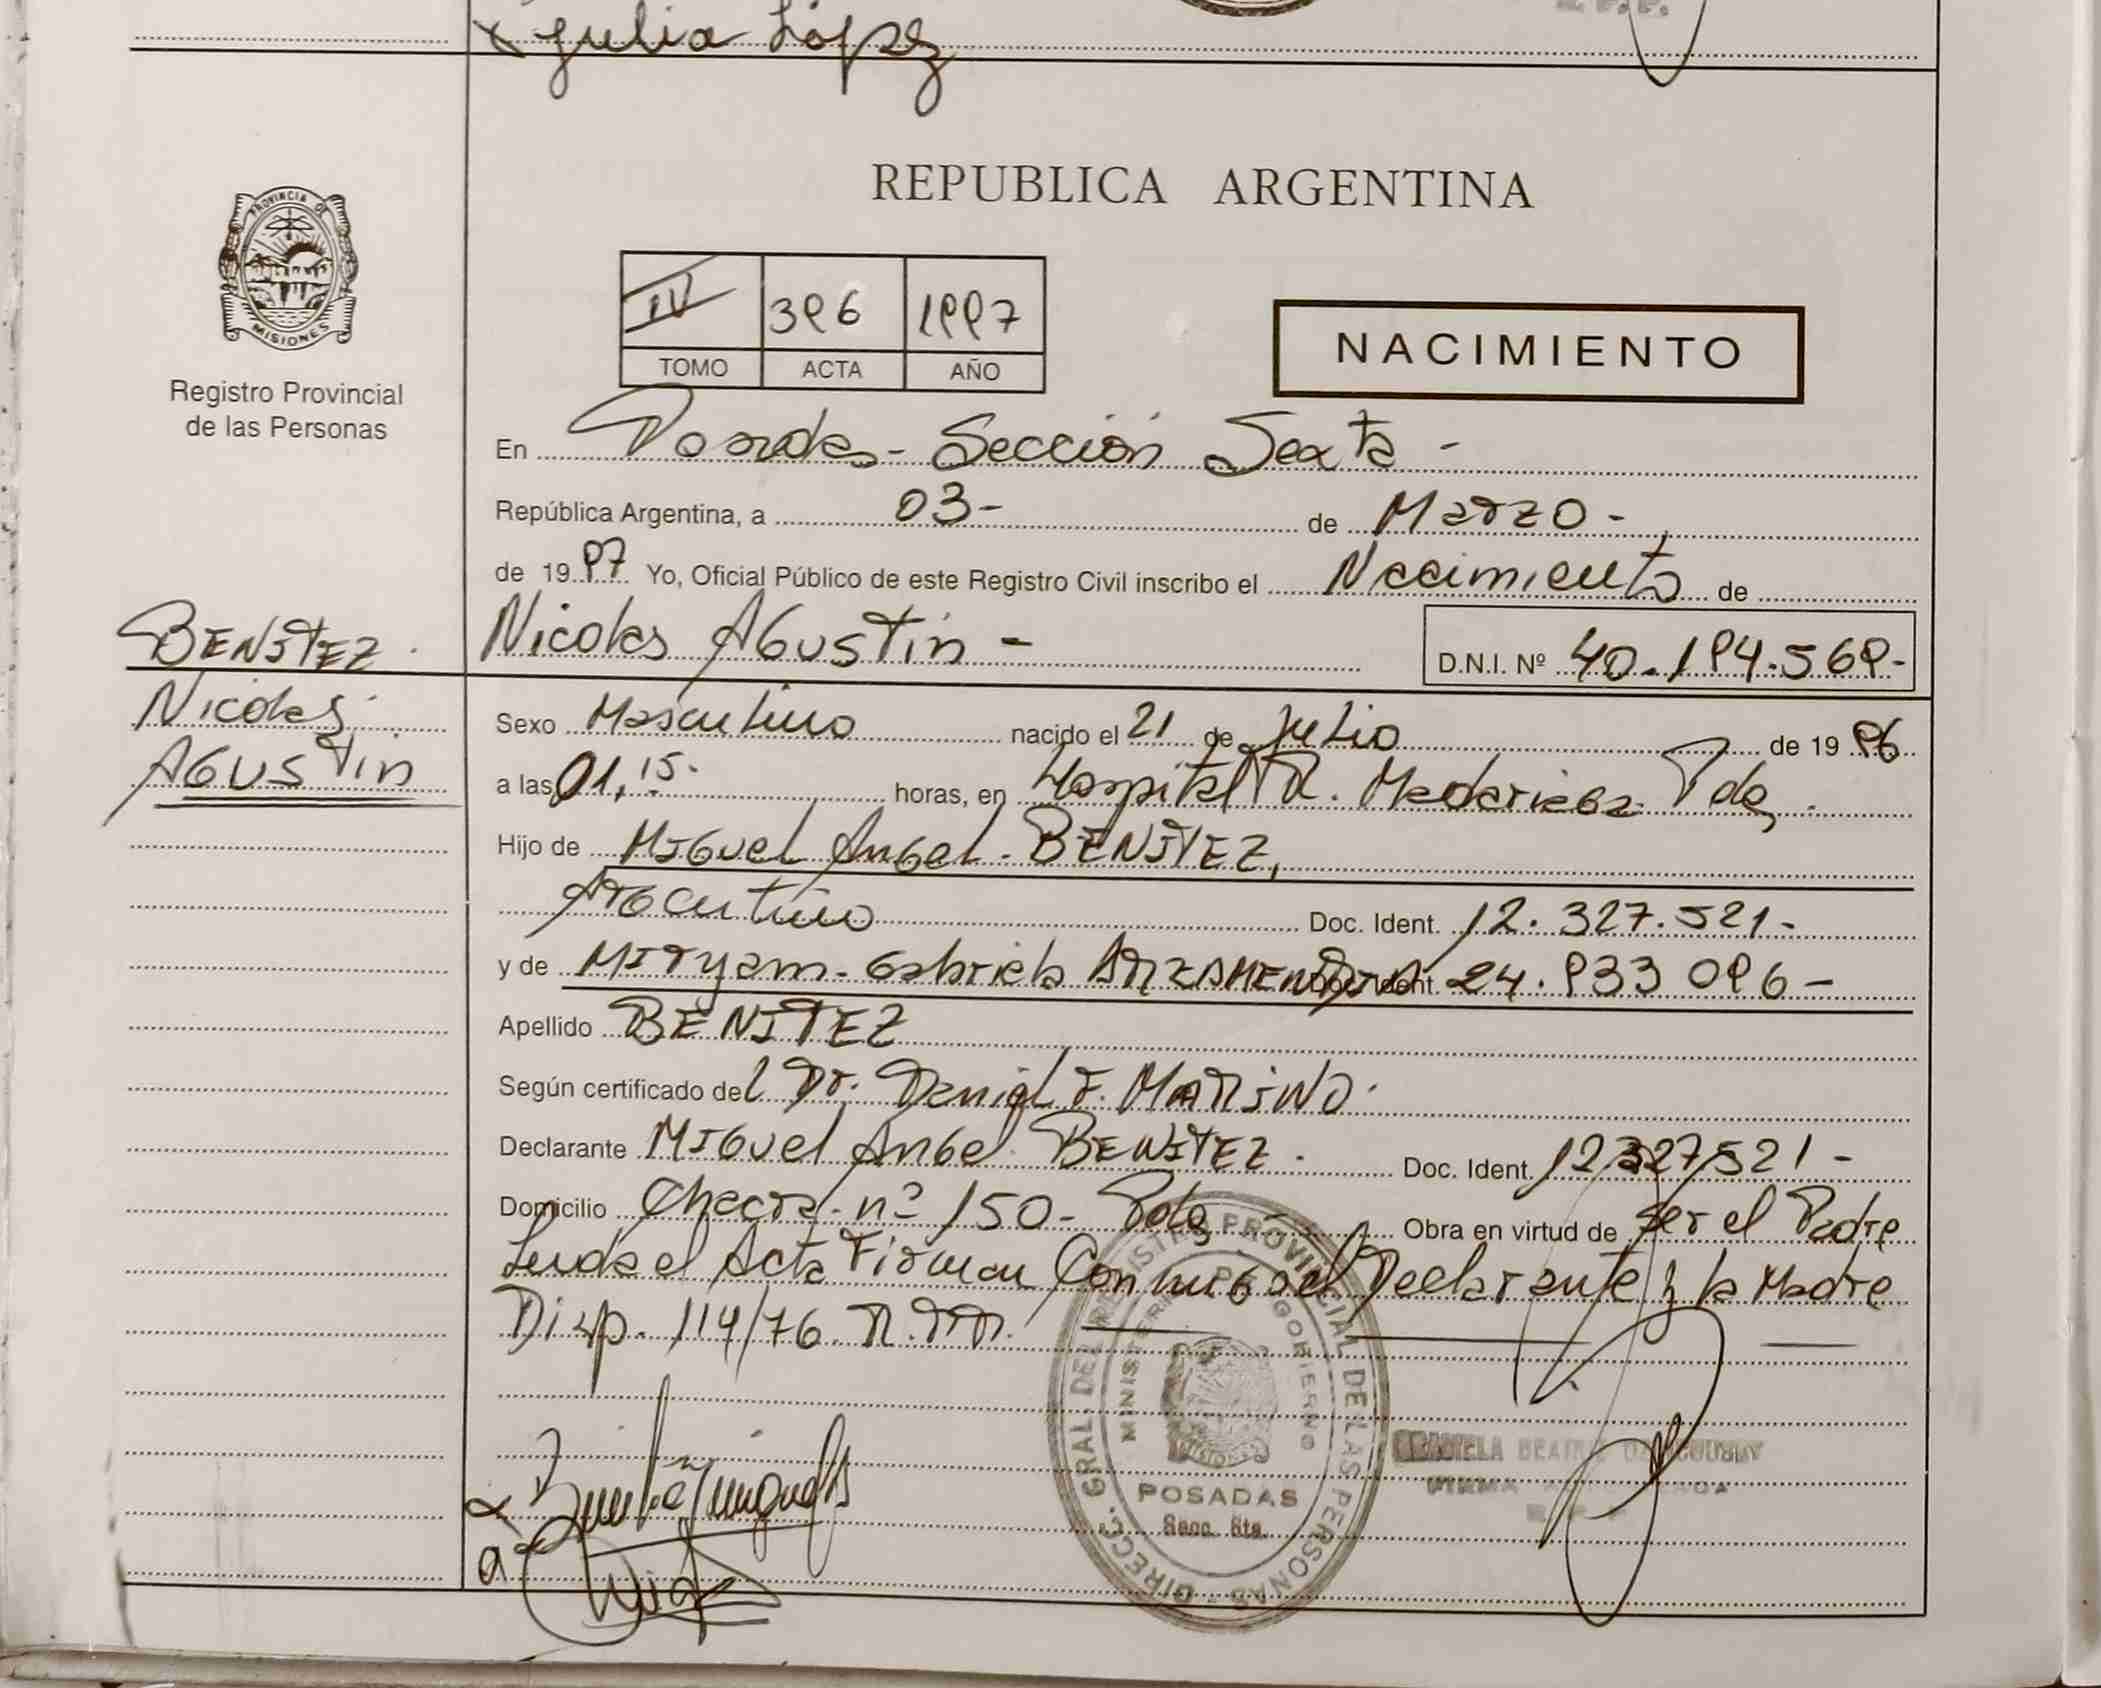 x Julia López
REPUBLICA ARGENTINA
PROVINCIA DE
MISIONES
Registro Provincial
de las Personas
IV 396 1997
TOMO ACTA AÑO
NACIMIENTO
En Posadas - Sección Sexta -
República Argentina, a 03- de Marzo -
de 1997 Yo, Oficial Público de este Registro Civil inscribo el Nacimiento de
BENITEZ
Nicolas
AGustin
Nicolas AGustin - D.N.I. Nº 40.194.569-
Sexo Masculino nacido el 21 de Julio de 1996
a las 01,15- horas, en Hospital R. Madariaga Pdas.
Hijo de Miguel Angel - BENITEZ,
Argentino Doc. Ident. 12.327.521-
y de Miryam - Gabriela Doc. Ident. 24.933 096-
Apellido BENITEZ
Según certificado del Dr. Daniel F. MARINO.
Declarante Miguel Angel BENITEZ. Doc. Ident. 12327521-
Domicilio Chacra nº 150 - Pdas - Obra en virtud de Ser el Padre
Leida el Acta Firman Conmigo el Declarante y la Madre
Disp. 114/76
DIRECC. GRAL. DEL REGISTRO PROVINCIAL DE LAS PERSONAS
MINISTERIO DE GOBIERNO
POSADAS
Secc. 6ta.
GRACIELA BEATRIZ
FIRMA AUTORIZADA